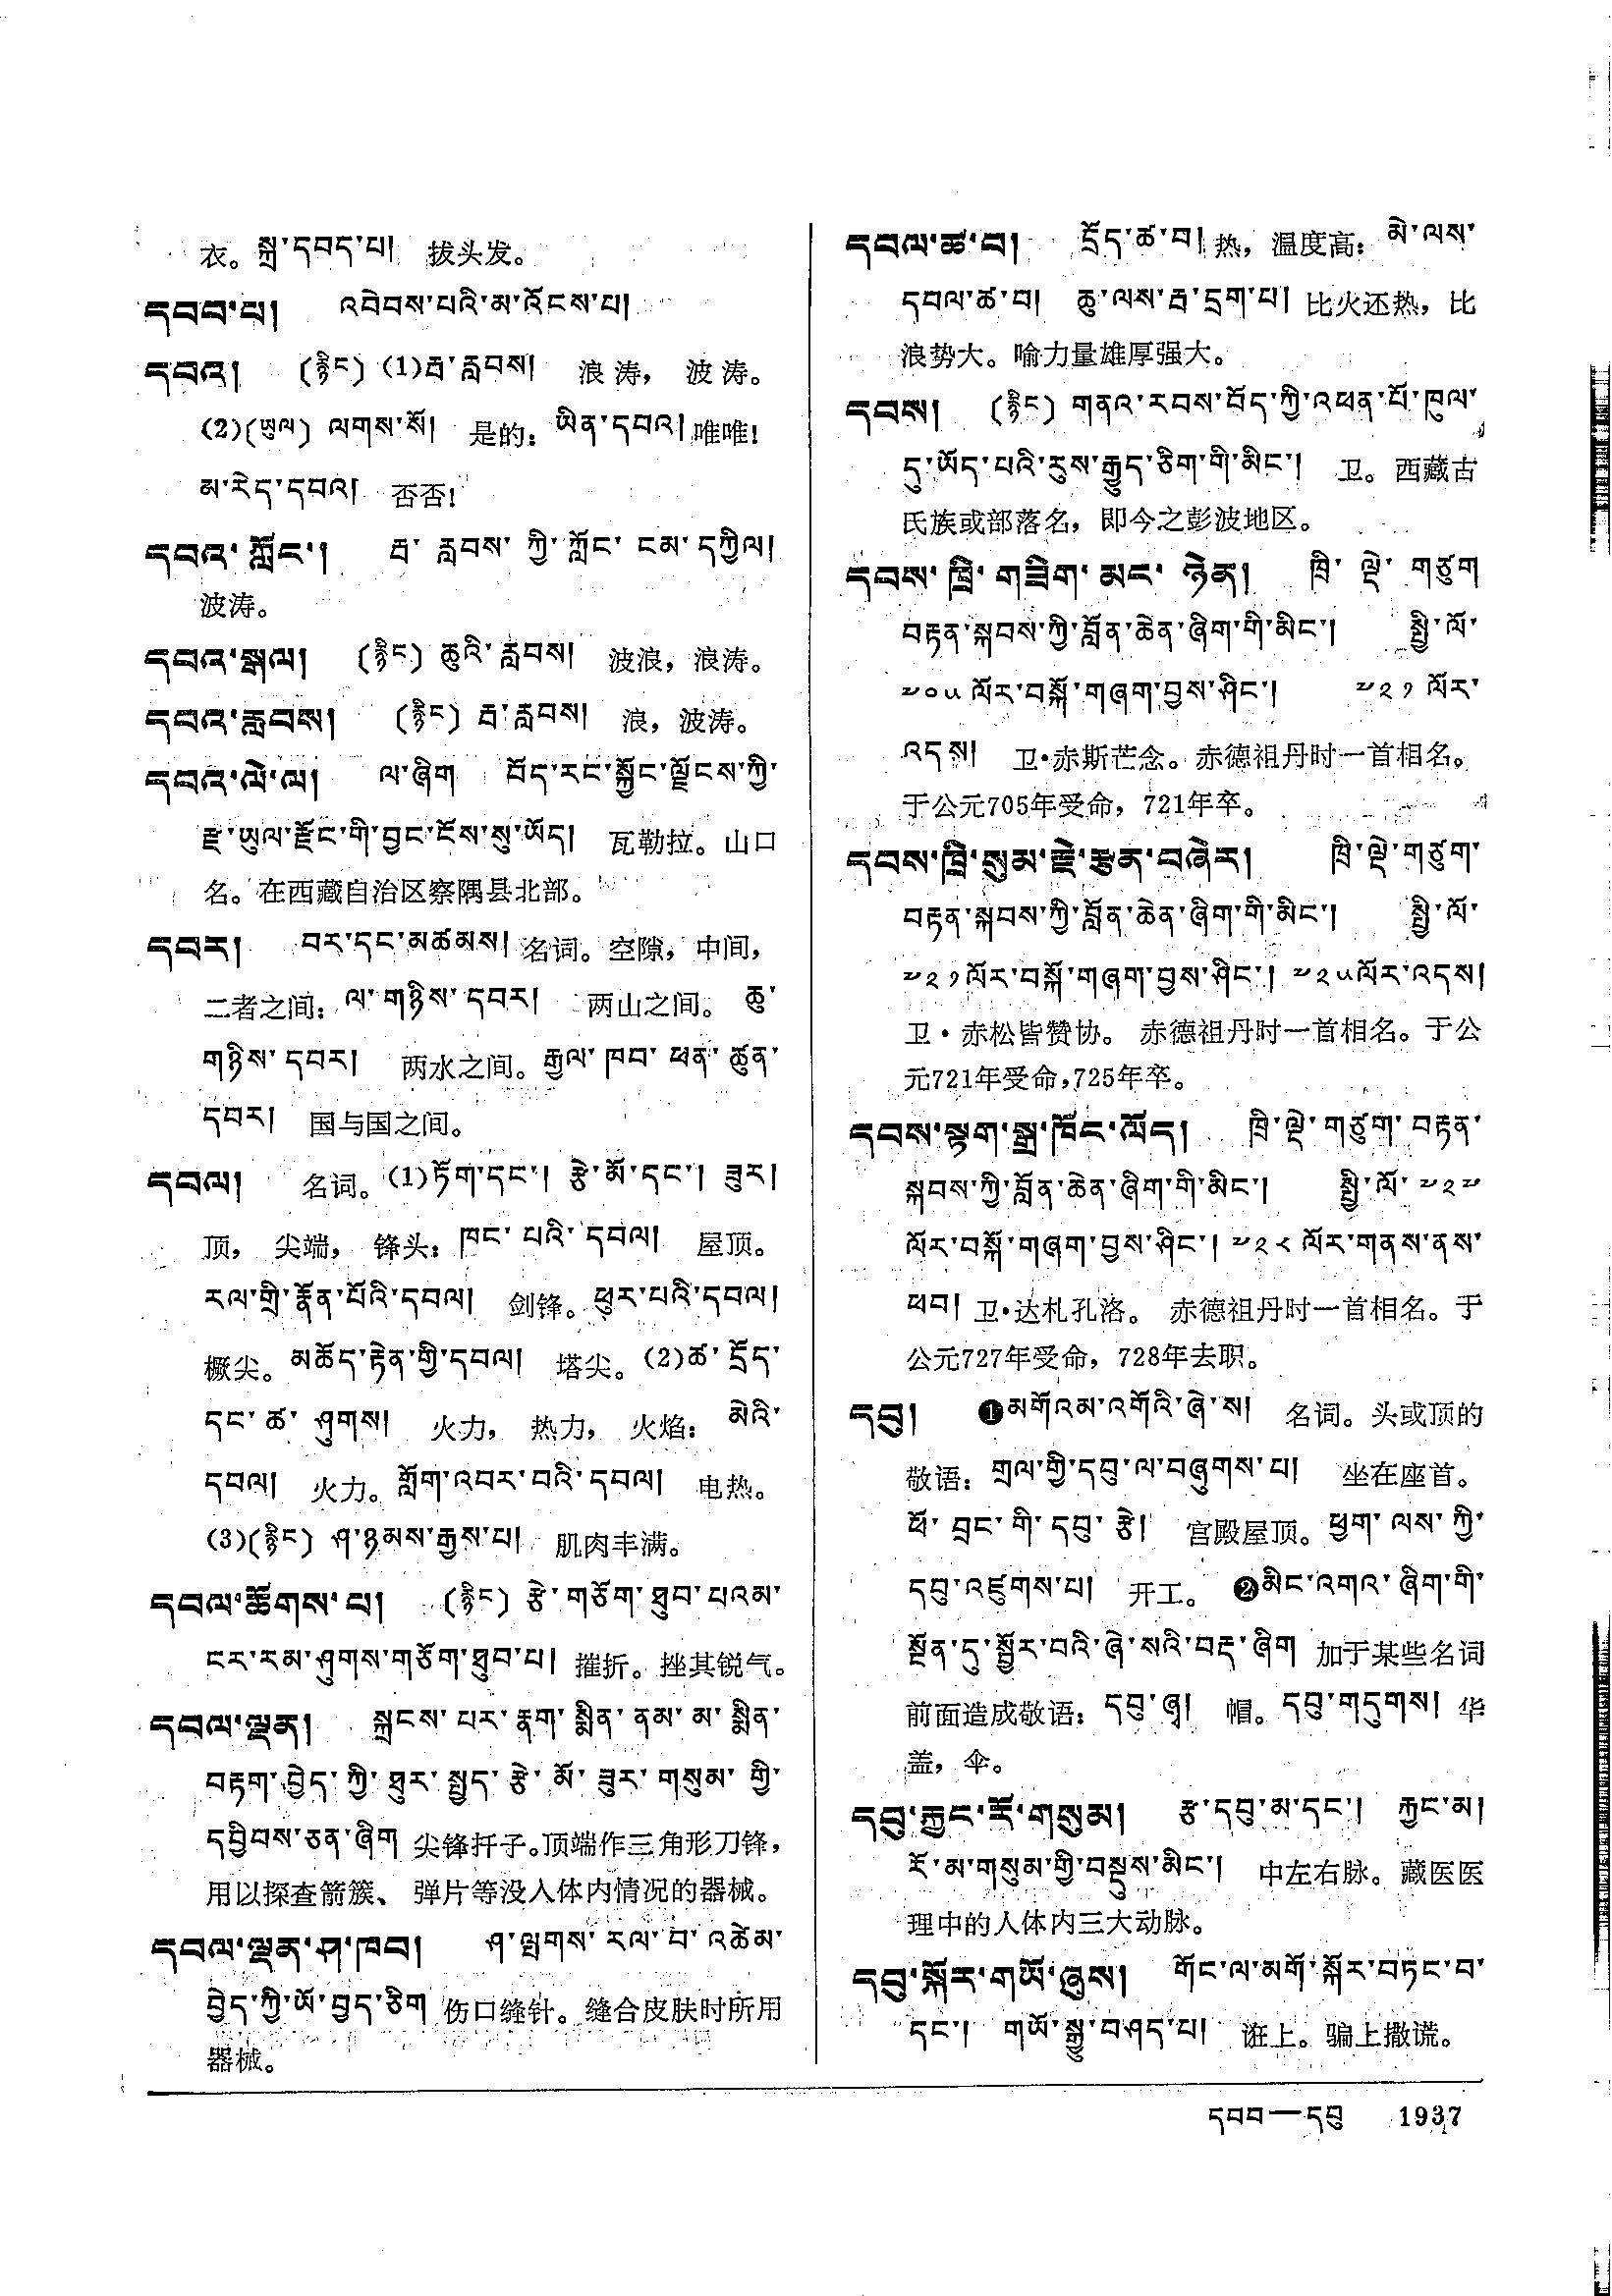 衣。 སྐྲ་དབད་པ། 拔头发。
དབབ་པ། འབེབས་པའི་མ་འོངས་པ།
དབའ། (རྙིང) (1)རྦ་རླབས། 浪涛，波涛。
(2)(ཡུལ) ལགས་སོ། 是的： ཡིན་དབའ། 唯唯！
མ་རེད་དབའ། 否否！
དབའ་ཀློང་། རྦ་རླབས་ཀྱི་ཀློང་ངམ་དཀྱིལ།
波涛。
དབའ་རྒལ། (རྙིང) ཆུའི་རླབས། 波浪，浪涛。
དབའ་རླབས། (རྙིང) རྦ་རླབས། 浪，波涛。
དབའ་ལེ་ལ། ལ་ཞིག བོད་རང་སྐྱོང་ལྗོངས་ཀྱི་
རྫ་ཡུལ་རྫོང་གི་བྱང་ངོས་སུ་ཡོད། 瓦勒拉。山口
名。在西藏自治区察隅县北部。
དབར། བར་དང་མཚམས། 名词。空隙，中间，
二者之间： ལ་གཉིས་དབར། 两山之间。 ཆུ་
གཉིས་དབར། 两水之间。 རྒྱལ་ཁབ་ཕན་ཚུན་
དབར། 国与国之间。
དབལ། 名词。 (1)ཏོག་དང་། རྩེ་མོ་དང་། ཟུར།
顶，尖端，锋头： ཁང་པའི་དབལ། 屋顶。
རལ་གྲི་རྣོན་པོའི་དབལ། 剑锋。 ཕུར་པའི་དབལ།
橛尖。 མཆོད་རྟེན་གྱི་དབལ། 塔尖。 (2)ཚ་དྲོད་
དང་ཚ་ཤུགས། 火力，热力，火焰： མེའི་
དབལ། 火力。 གློག་འབར་བའི་དབལ། 电热。
(3)(རྙིང) ཤ་ཉམས་རྒྱས་པ། 肌肉丰满。
དབལ་ཚོགས་པ། (རྙིང) རྩེ་གཅོག་ཐུབ་པའམ་
ངར་རམ་ཤུགས་གཅོག་ཐུབ་པ། 摧折。挫其锐气。
དབལ་ལྡན། སྐྲངས་པར་རྣག་སྨིན་ནམ་མ་སྨིན་
བརྟག་བྱེད་ཀྱི་ཐུར་སྤྱད་རྩེ་མོ་ཟུར་གསུམ་གྱི་
དབྱིབས་ཅན་ཞིག 尖锋扦子。顶端作三角形刀锋，
用以探查箭簇、弹片等没入体内情况的器械。
དབལ་ལྡན་ཤ་ཁབ། ཤ་ལྤགས་རལ་བ་འཚེམ་
བྱེད་ཀྱི་ཡོ་བྱད་ཅིག 伤口缝针。缝合皮肤时所用
器械。
དབལ་ཚ་བ། དྲོད་ཚ་བ། 热，温度高： མེ་ལས་
དབལ་ཚ་བ། ཆུ་ལས་རྦ་དྲག་པ། 比火还热，比
浪势大。喻力量雄厚强大。
དབས། (རྙིང) གནའ་རབས་བོད་ཀྱི་འཕན་པོ་ཁུལ་
དུ་ཡོད་པའི་རུས་རྒྱུད་ཅིག་གི་མིང་། 卫。西藏古
氏族或部落名，即今之彭波地区。
དབས་ཁྲི་གཟིག་མང་ཉེན། ཁྲི་ལྡེ་གཙུག
བརྟན་སྐབས་ཀྱི་བློན་ཆེན་ཞིག་གི་མིང་། སྤྱི་ལོ་
༧༠༥ ལོར་བསྐོ་གཞག་བྱས་ཤིང་། ༧༢༡ ལོར་
འདས། 卫·赤斯芒念。赤德祖丹时一首相名。
于公元705年受命，721年卒。
དབས་ཁྲི་སུམ་རྗེ་རྩན་བཞེར། ཁྲི་ལྡེ་གཙུག་
བརྟན་སྐབས་ཀྱི་བློན་ཆེན་ཞིག་གི་མིང་། སྤྱི་ལོ་
༧༢༡ལོར་བསྐོ་གཞག་བྱས་ཤིང་། ༧༢༥ལོར་འདས།
卫·赤松皆赞协。赤德祖丹时一首相名。于公
元721年受命，725年卒。
དབས་སྟག་སྒྲ་ཁོང་ལོད། ཁྲི་ལྡེ་གཙུག་བརྟན་
སྐབས་ཀྱི་བློན་ཆེན་ཞིག་གི་མིང་། སྤྱི་ལོ་༧༢༧
ལོར་བསྐོ་གཞག་བྱས་ཤིང་། ༧༢༨ ལོར་གནས་ནས་
ཕབ། 卫·达札孔洛。赤德祖丹时一首相名。于
公元727年受命，728年去职。
དབུ། ❶མགོའམ་འགོའི་ཞེ་ས། 名词。头或顶的
敬语： གྲལ་གྱི་དབུ་ལ་བཞུགས་པ། 坐在座首。
ཕོ་བྲང་གི་དབུ་རྩེ། 宫殿屋顶。 ཕྱག་ལས་ཀྱི་
དབུ་འཛུགས་པ། 开工。 ❷མིང་འགའ་ཞིག་གི་
སྔོན་དུ་སྦྱོར་བའི་ཞེ་སའི་བརྡ་ཞིག 加于某些名词
前面造成敬语： དབུ་ཞྭ། 帽。 དབུ་གདུགས། 华
盖，伞。
དབུ་རྐྱང་རོ་གསུམ། རྩ་དབུ་མ་དང་། རྐྱང་མ།
རོ་མ་གསུམ་གྱི་བསྡུས་མིང་། 中左右脉。藏医医
理中的人体内三大动脉。
དབུ་སྐོར་གཡོ་ཞུས། གོང་ལ་མགོ་སྐོར་བཏང་བ་
དང་། གཡོ་སྒྱུ་བཤད་པ། 诳上。骗上撒谎。
དབབ—དབུ 1937